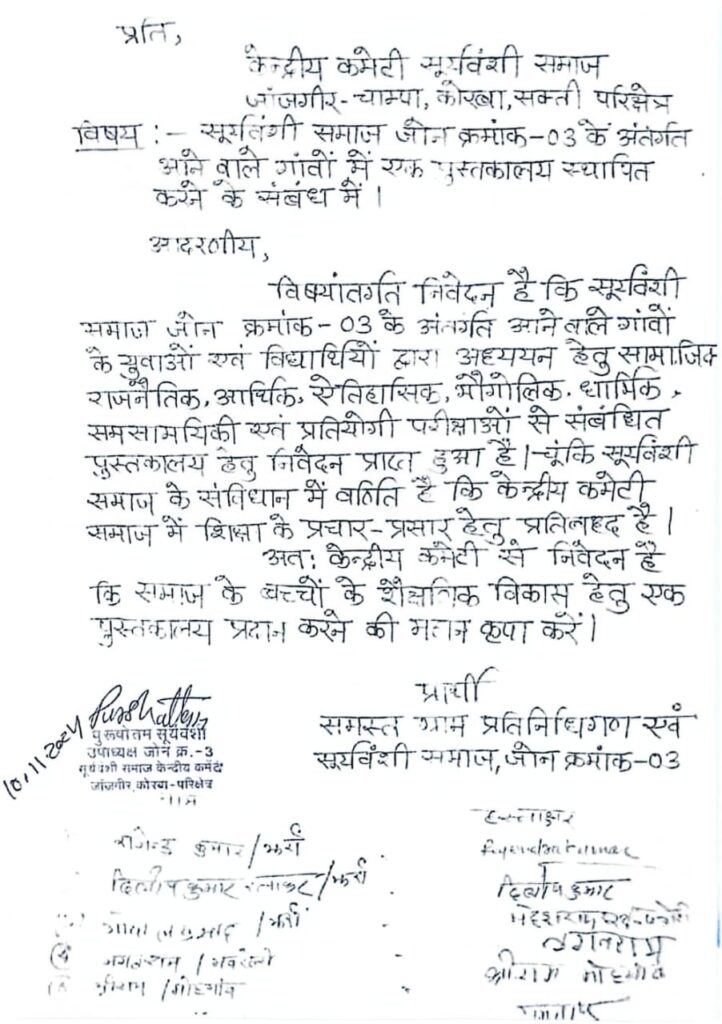 प्रति,
केन्द्रीय कमेटी सूर्यवंशी समाज
जांजगीर-चाम्पा, कोरबा, सक्ती परिक्षेत्र
विषय :- सूर्यवंशी समाज जोन क्रमांक-03 के अंतर्गत
आने वाले गांवों में एक पुस्तकालय स्थापित
करने के संबंध में।
आदरणीय,
विषयांतर्गत निवेदन है कि सूर्यवंशी
समाज जोन क्रमांक-03 के अंतर्गत आने वाले गांवों
के युवाओं एवं विद्यार्थियों द्वारा अध्ययन हेतु सामाजिक
राजनैतिक, आर्थिक, ऐतिहासिक, भौगोलिक, धार्मिक,
समसामयिकी एवं प्रतियोगी परीक्षाओं से संबंधित
पुस्तकालय हेतु निवेदन प्राप्त हुआ है। चूंकि सूर्यवंशी
समाज के संविधान में वर्णित है कि केन्द्रीय कमेटी
समाज में शिक्षा के प्रचार-प्रसार हेतु प्रतिबद्ध है।
अतः केन्द्रीय कमेटी से निवेदन है
कि समाज के बच्चों के शैक्षणिक विकास हेतु एक
पुस्तकालय प्रदान करने की महान कृपा करें।
प्रार्थी
समस्त ग्राम प्रतिनिधिगण एवं
सूर्यवंशी समाज, जोन क्रमांक-03
10.11.2024
पुरूषोतम सूर्यवंशी
उपाध्यक्ष जोन क्र.-3
सूर्यवंशी समाज केन्द्रीय कमेटी
जांजगीर, कोरबा-परिक्षेत्र
हस्ताक्षर
कुमार /
दिलीप कुमार
दिलीप कुमार
श्रीराम